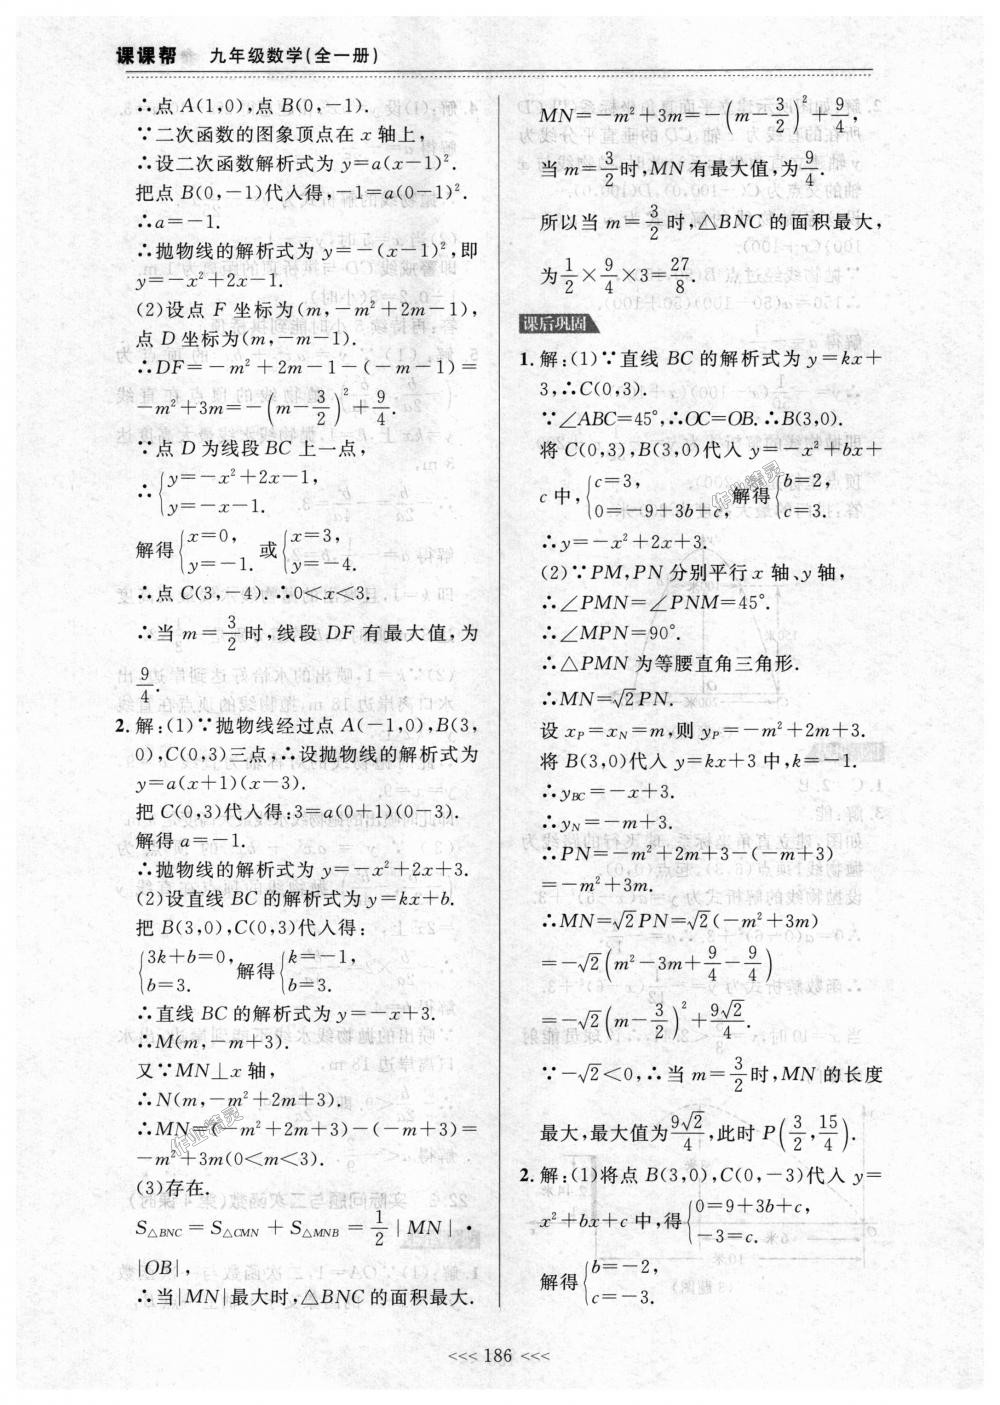 课课帮 九年级数学(全一册)
∴点 A(1,0),点 B(0,-1).
∵二次函数的图象顶点在 x 轴上,
∴设二次函数解析式为 y=a(x-1)².
把点 B(0,-1)代入得,-1=a(0-1)².
∴a=-1.
∴抛物线的解析式为 y=-(x-1)²,即
y=-x²+2x-1.
(2)设点 F 坐标为(m,-m²+2m-1),
点 D 坐标为(m,-m-1).
∴DF=-m²+2m-1-(-m-1)=
-m²+3m=-(m-3/2)²+9/4.
∵点 D 为线段 BC 上一点,
∴{y=-x²+2x-1,
y=-x-1.
解得{x=0, y=-1. 或{x=3, y=-4.
∴点 C(3,-4). ∴0<x<3.
∴当 m=3/2时,线段 DF 有最大值,为
9/4.
2. 解:(1)∵抛物线经过点 A(-1,0),B(3,
0),C(0,3)三点,∴设抛物线的解析式为
y=a(x+1)(x-3).
把 C(0,3)代入得:3=a(0+1)(0-3).
解得 a=-1.
∴抛物线的解析式为 y=-x²+2x+3.
(2)设直线 BC 的解析式为 y=kx+b.
把 B(3,0),C(0,3)代入得:
{3k+b=0, b=3. 解得{k=-1, b=3.
∴直线 BC 的解析式为 y=-x+3.
∴M(m,-m+3).
又∵MN⊥x 轴,
∴N(m,-m²+2m+3).
∴MN=(-m²+2m+3)-(-m+3)=
-m²+3m(0<m<3).
(3)存在.
S△BNC=S△CMN+S△MNB=1/2|MN|·
|OB|,
∴当|MN|最大时,△BNC 的面积最大.
MN=-m²+3m=-(m-3/2)²+9/4,
当 m=3/2时,MN 有最大值,为9/4.
所以当 m=3/2时,△BNC 的面积最大,
为1/2×9/4×3=27/8.
课后巩固
1. 解:(1)∵直线 BC 的解析式为 y=kx+
3,∴C(0,3).
∵∠ABC=45°,∴OC=OB. ∴B(3,0).
将 C(0,3),B(3,0)代入 y=-x²+bx+
c 中,{c=3, 0=-9+3b+c, 解得{b=2, c=3.
∴y=-x²+2x+3.
(2)∵PM,PN 分别平行 x 轴、y 轴,
∴∠PMN=∠PNM=45°.
∴∠MPN=90°.
∴△PMN 为等腰直角三角形.
∴MN=√2PN.
设 xP=xN=m,则 yP=-m²+2m+3.
将 B(3,0)代入 y=kx+3 中,k=-1.
∴yBC=-x+3.
∴yN=-m+3.
∴PN=-m²+2m+3-(-m+3)
=-m²+3m.
∴MN=√2PN=√2(-m²+3m)
=-√2(m²-3m+9/4-9/4)
=-√2(m-3/2)²+9√2/4.
∵-√2<0,∴当 m=3/2时,MN 的长度
最大,最大值为9√2/4,此时 P(3/2,15/4).
2. 解:(1)将点 B(3,0),C(0,-3)代入 y=
x²+bx+c 中,得{0=9+3b+c, -3=c.
解得{b=-2, c=-3.
<<< 186 <<<